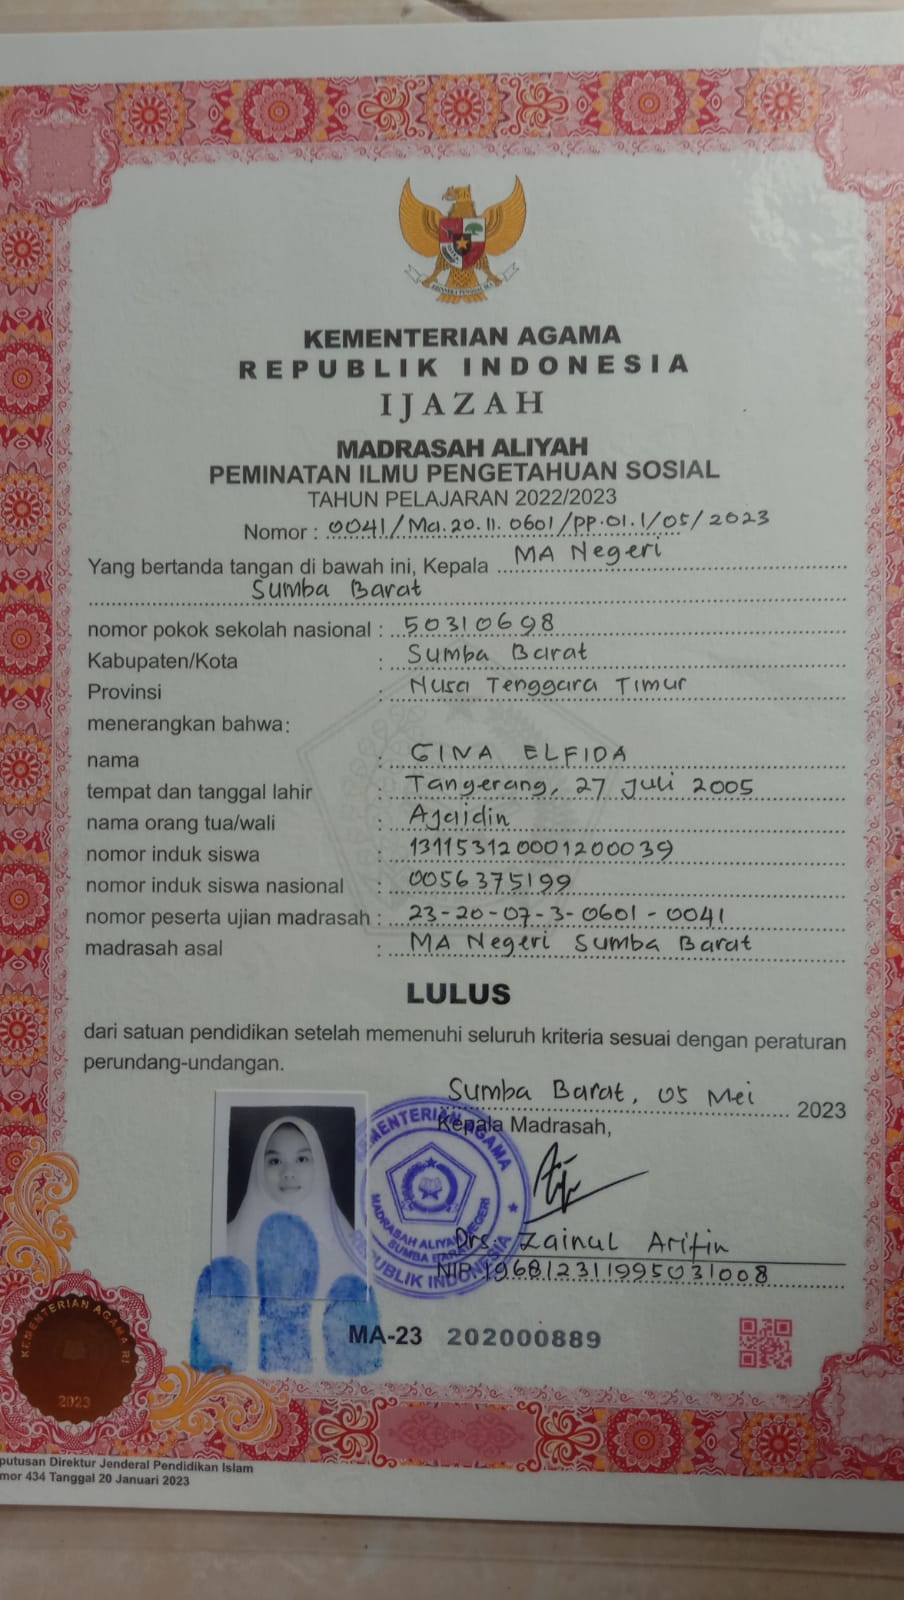 KEMENTERIAN AGAMA
REPUBLIK INDONESIA
IJAZAH
MADRASAH ALIYAH
PEMINATAN ILMU PENGETAHUAN SOSIAL
TAHUN PELAJARAN 2022/2023
Nomor : 0041/Ma.20.11.0601/PP.01.1/05/2023
Yang bertanda tangan di bawah ini, Kepala MA Negeri
Sumba Barat
nomor pokok sekolah nasional : 50310698
Kabupaten/Kota : Sumba Barat
Provinsi : Nusa Tenggara Timur
menerangkan bahwa:
nama : GINA ELFIDA
tempat dan tanggal lahir : Tangerang, 27 Juli 2005
nama orang tua/wali : Ajaidin
nomor induk siswa : 131153120001200039
nomor induk siswa nasional : 0056375199
nomor peserta ujian madrasah : 23-20-07-3-0601-0041
madrasah asal : MA Negeri Sumba Barat
LULUS
dari satuan pendidikan setelah memenuhi seluruh kriteria sesuai dengan peraturan
perundang-undangan.
Sumba Barat, 05 Mei 2023
Kepala Madrasah,
KEMENTERIAN AGAMA
MADRASAH ALIYAH NEGERI
SUMBA BARAT
REPUBLIK INDONESIA
Drs. Zainul Arifin
NIP 196812311995031008
MA-23 202000889
KEMENTERIAN AGAMA RI
2023
putusan Direktur Jenderal Pendidikan Islam
mor 434 Tanggal 20 Januari 2023